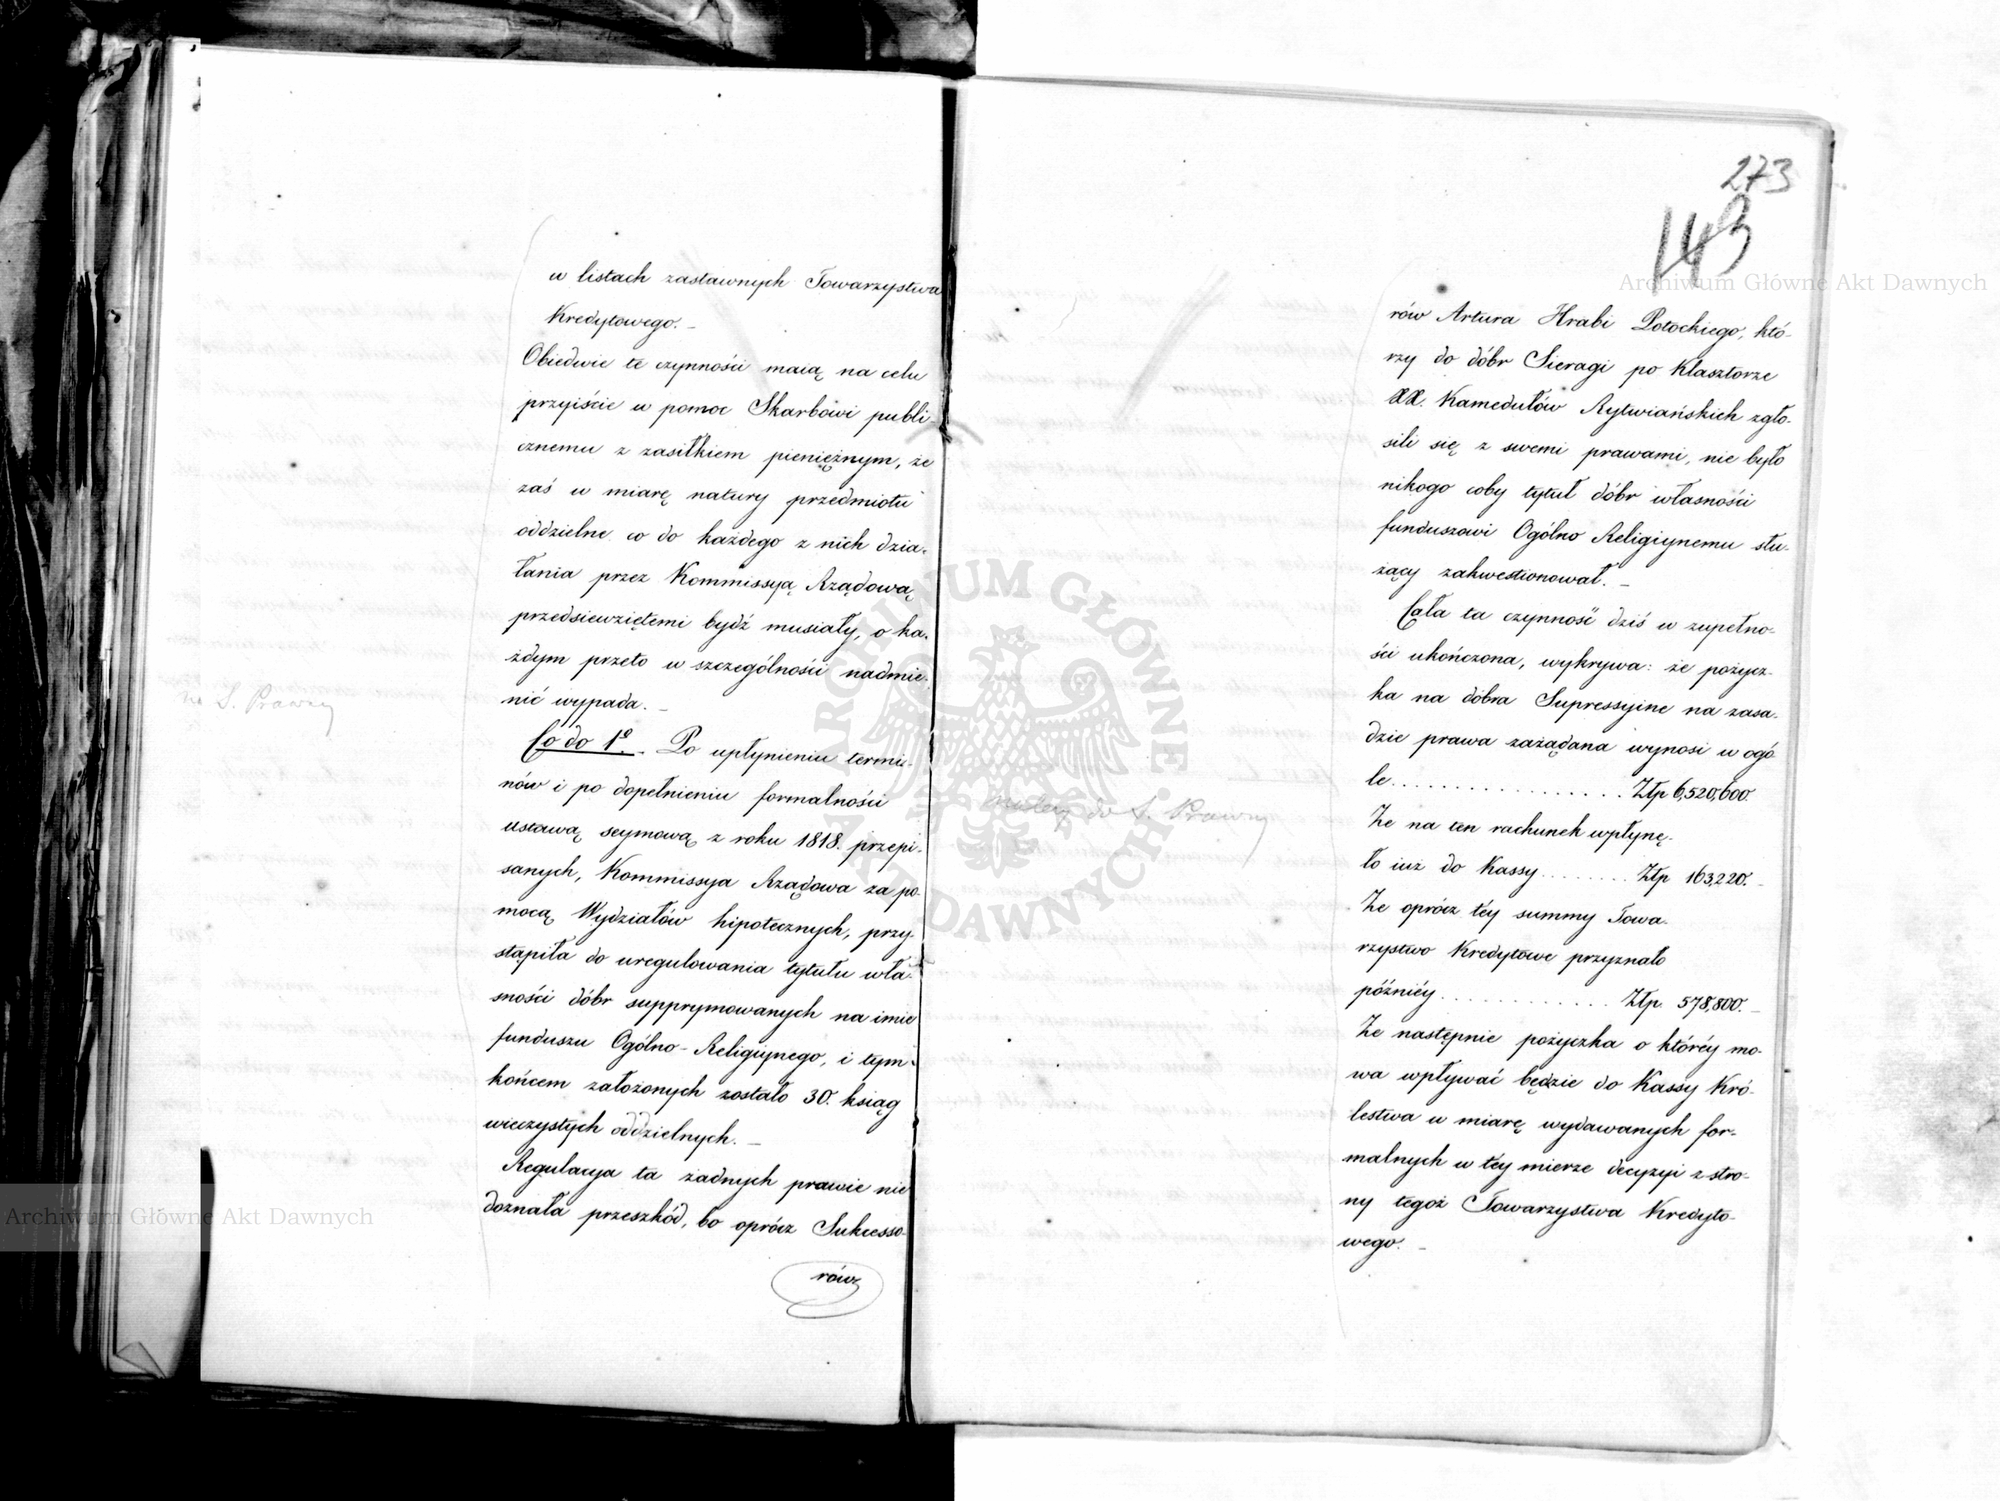 w listach zastawnych Towarzystwa
Kredytowego. _
Obiedwie te czynności maią na celu
przyiście w pomoc Skarbowi publi-
cznemu z zasiłkiem pieniężnym, że
zaś w miarę natury przedmiotu
oddzielne co do każdego z nich dzia-
łania przez Kommissyą Rządową
przedsiewziętemi bydź musiały, o ka-
żdym przeto w szczególności nadmie-
nić wypada. _
S. Prawny
Co do 1o. Po upłynieniu termi-
nów i po dopełnieniu formalności
ustawą seymową z roku 1818. przepi-
sanych, Kommissya Rządowa za po-
mocą Wydziałów hipotecznych, przy-
stąpiła do uregulowania tytułu wła-
sności dóbr supprymowanych na imie
funduszu Ogólno-Religiynego, i tym
końcem założonych zostało 30. ksiąg
wieczystych oddzielnych. _
Regulacya ta żadnych prawie nie
doznała przeszkód, bo oprócz Sukcesso-
rów
273
143
rów Artura Hrabi Potockiego, któ-
rzy do dóbr Sieragi po Klasztorze
XX. Kamedułów Rytwiańskich zgło-
sili się z swemi prawami, nie było
nikogo coby tytuł dóbr własności
funduszowi Ogólno Religiynemu słu-
żący zakwestionował. _
Cała ta czynność dziś w zupełno-
ści ukończona, wykrywa: że pożycz-
ka na dobra Supressyine na zasa-
dzie prawa zażądana wynosi w ogó
le................. Złp 6,520,600.
Że na ten rachunek wpłynę-
ło iuż do Kassy........ Złp 163,220. _
Że oprócz téy summy Towa-
rzystwo Kredytowe przyznało
późniéy............. Złp. 578,800. _
Że następnie pożyczka o któréy mo-
wa wpływać będzie do Kassy Kró-
lestwa w miarę wydawanych for-
malnych w téy mierze decyzyi z stro-
ny tegoż Towarzystwa Kredyto-
wego. _
do S. Prawny
Archiwum Główne Akt Dawnych
Archiwum Główne Akt Dawnych
ARCHIWUM GŁÓWNE AKT DAWNYCH